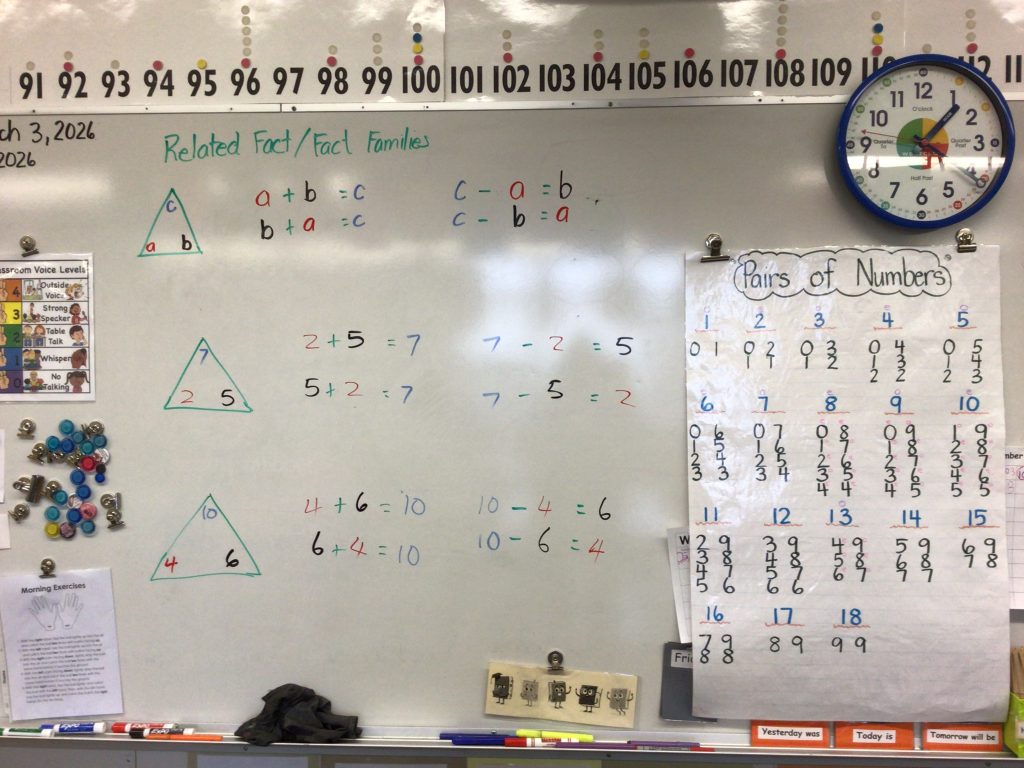 91 92 93 94 95 96 97 98 99 100 101 102 103 104 105 106 107 108 109 110 112
ch 3, 2026
2026
Related Fact/Fact Families
c
a b
a + b = c
b + a = c
c - a = b
c - b = a
7
2 5
2 + 5 = 7
5 + 2 = 7
7 - 2 = 5
7 - 5 = 2
10
4 6
4 + 6 = 10
6 + 4 = 10
10 - 4 = 6
10 - 6 = 4
assroom Voice Levels
4 Outside Voice
3 Strong Specker
2 Table Talk
1 Whisper
0 No Talking
Morning Exercises
12
11 1
10 2
9 3
8
7 5
6
O'clock
Quarter To
Quarter Past
Half Past
Pairs of Numbers
1 2 3 4 5
0 1 0 2 0 3 0 4 0 5
1 1 1 2 1 3 1 4
2 2 2 3
6 7 8 9 10
0 6 0 7 0 8 0 9 1 9
1 5 1 6 1 7 1 8 2 8
2 4 2 5 2 6 2 7 3 7
3 3 3 4 3 5 3 6 4 6
4 4 4 5 5 5
11 12 13 14 15
2 9 3 9 4 9 5 9 6 9
3 8 4 8 5 8 6 8 7 8
4 7 5 7 6 7 7 7
5 6 6 6
16 17 18
7 9 8 9 9 9
8 8
Fri
EXPO
EXPO
Yesterday was
Today is
Tomorrow will be